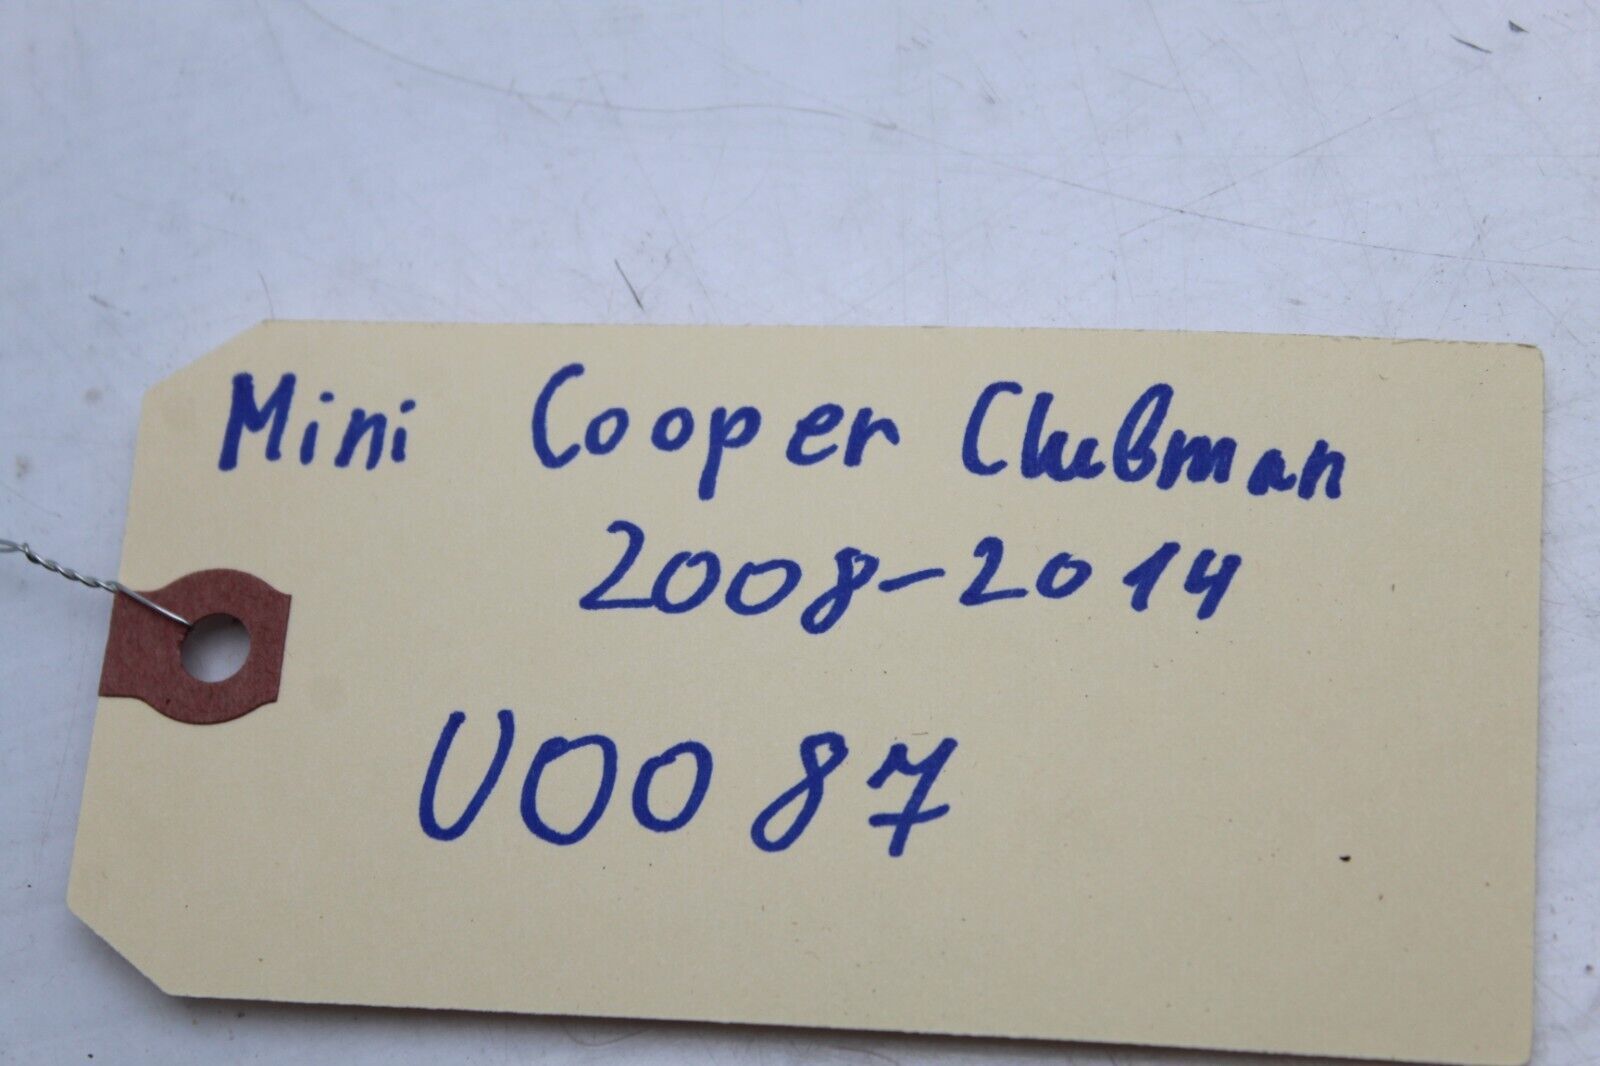 Mini Cooper Clubman
2008-2014
U0087